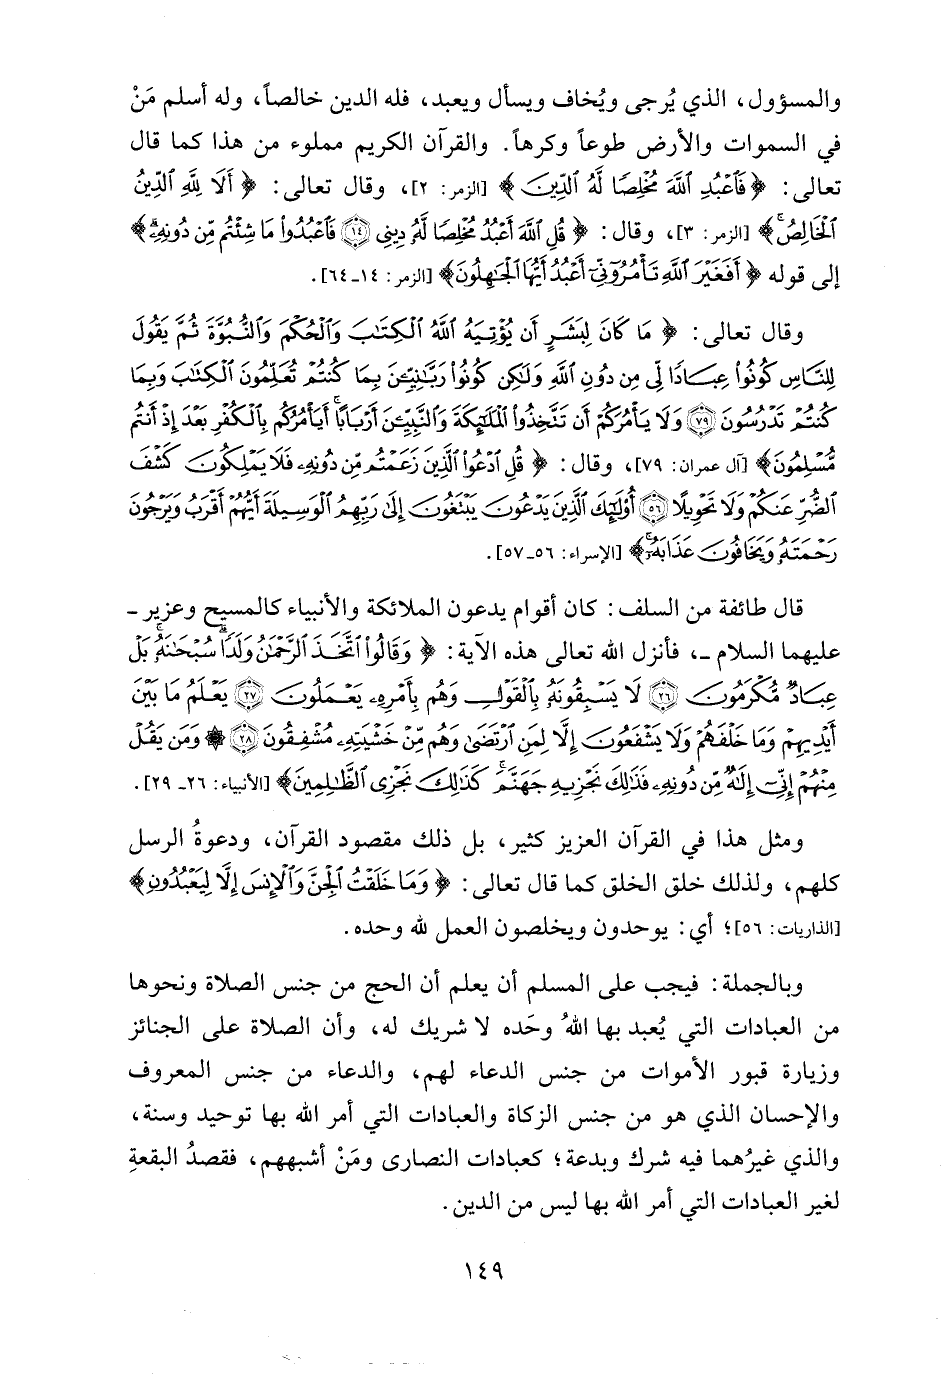 والمسؤول، الذي يُرجى ويُخاف ويسأل ويعبد، فله الدين خالصاً، وله أسلم مَنْ
في السموات والأرض طوعاً وكرهاً. والقرآن الكريم مملوء من هذا كما قال
تعالى: ﴿فَٱعْبُدِ ٱللَّهَ مُخْلِصًا لَّهُ ٱلدِّينَ﴾ [الزمر: ٢]، وقال تعالى: ﴿أَلَا لِلَّهِ ٱلدِّينُ
ٱلْخَالِصُ ۚ﴾ [الزمر: ٣]، وقال: ﴿قُلِ ٱللَّهَ أَعْبُدُ مُخْلِصًا لَّهُ دِينِى ۝١٤ فَٱعْبُدُوا۟ مَا شِئْتُم مِّن دُونِهِۦ ۗ﴾
إلى قوله ﴿أَفَغَيْرَ ٱللَّهِ تَأْمُرُوٓنِّىٓ أَعْبُدُ أَيُّهَا ٱلْجَٰهِلُونَ﴾ [الزمر: ١٤ـ٦٤].
وقال تعالى: ﴿مَا كَانَ لِبَشَرٍ أَن يُؤْتِيَهُ ٱللَّهُ ٱلْكِتَٰبَ وَٱلْحُكْمَ وَٱلنُّبُوَّةَ ثُمَّ يَقُولَ
لِلنَّاسِ كُونُوا۟ عِبَادًا لِّى مِن دُونِ ٱللَّهِ وَلَٰكِن كُونُوا۟ رَبَّٰنِيِّۦنَ بِمَا كُنتُمْ تُعَلِّمُونَ ٱلْكِتَٰبَ وَبِمَا
كُنتُمْ تَدْرُسُونَ ۝٧٩ وَلَا يَأْمُرَكُمْ أَن تَتَّخِذُوا۟ ٱلْمَلَٰٓئِكَةَ وَٱلنَّبِيِّۦنَ أَرْبَابًا ۗ أَيَأْمُرُكُم بِٱلْكُفْرِ بَعْدَ إِذْ أَنتُم
مُّسْلِمُونَ﴾ [آل عمران: ٧٩]، وقال: ﴿قُلِ ٱدْعُوا۟ ٱلَّذِينَ زَعَمْتُم مِّن دُونِهِۦ فَلَا يَمْلِكُونَ كَشْفَ
ٱلضُّرِّ عَنكُمْ وَلَا تَحْوِيلًا ۝٥٦ أُو۟لَٰٓئِكَ ٱلَّذِينَ يَدْعُونَ يَبْتَغُونَ إِلَىٰ رَبِّهِمُ ٱلْوَسِيلَةَ أَيُّهُمْ أَقْرَبُ وَيَرْجُونَ
رَحْمَتَهُۥ وَيَخَافُونَ عَذَابَهُۥٓ ۚ﴾ [الإسراء: ٥٦ـ٥٧].
قال طائفة من السلف: كان أقوام يدعون الملائكة والأنبياء كالمسيح وعزير ـ
عليهما السلام ـ، فأنزل الله تعالى هذه الآية: ﴿وَقَالُوا۟ ٱتَّخَذَ ٱلرَّحْمَٰنُ وَلَدًا ۗ سُبْحَٰنَهُۥ ۚ بَلْ
عِبَادٌ مُّكْرَمُونَ ۝٢٦ لَا يَسْبِقُونَهُۥ بِٱلْقَوْلِ وَهُم بِأَمْرِهِۦ يَعْمَلُونَ ۝٢٧ يَعْلَمُ مَا بَيْنَ
أَيْدِيهِمْ وَمَا خَلْفَهُمْ وَلَا يَشْفَعُونَ إِلَّا لِمَنِ ٱرْتَضَىٰ وَهُم مِّنْ خَشْيَتِهِۦ مُشْفِقُونَ ۝٢٨ ۞ وَمَن يَقُلْ
مِنْهُمْ إِنِّىٓ إِلَٰهٌ مِّن دُونِهِۦ فَذَٰلِكَ نَجْزِيهِ جَهَنَّمَ ۚ كَذَٰلِكَ نَجْزِى ٱلظَّٰلِمِينَ﴾ [الأنبياء: ٢٦ـ ٢٩].
ومثل هذا في القرآن العزيز كثير، بل ذلك مقصود القرآن، ودعوةُ الرسل
كلهم، ولذلك خلق الخلق كما قال تعالى: ﴿وَمَا خَلَقْتُ ٱلْجِنَّ وَٱلْإِنسَ إِلَّا لِيَعْبُدُونِ﴾
[الذاريات: ٥٦]؛ أي: يوحدون ويخلصون العمل لله وحده.
وبالجملة: فيجب على المسلم أن يعلم أن الحج من جنس الصلاة ونحوها
من العبادات التي يُعبد بها اللهُ وحَده لا شريك له، وأن الصلاة على الجنائز
وزيارة قبور الأموات من جنس الدعاء لهم، والدعاء من جنس المعروف
والإحسان الذي هو من جنس الزكاة والعبادات التي أمر الله بها توحيد وسنة،
والذي غيرُهما فيه شرك وبدعة؛ كعبادات النصارى ومَنْ أشبههم، فقصدُ البقعةِ
لغير العبادات التي أمر الله بها ليس من الدين.
١٤٩